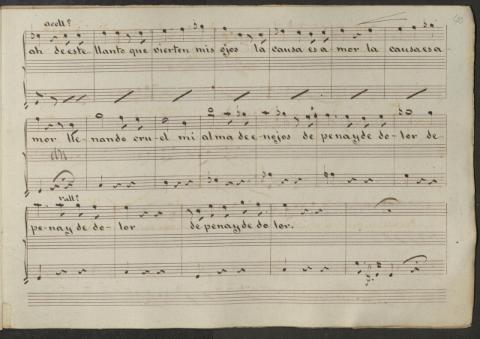 acell?
ah de este llanto que vierten mis ojos la causa es a mor la causa es a
mor lle- nando cru- el mi alma de enojos de pena y de do- lor de
rall?
pe-na y de do- lor de pena y de dolor.